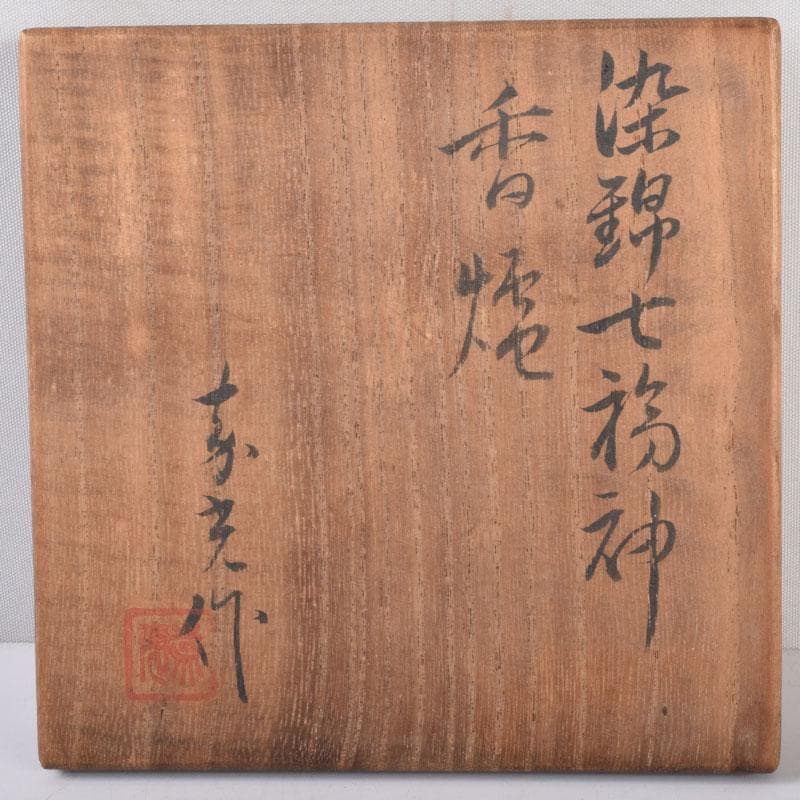 染錦七福神
香爐
寿光作